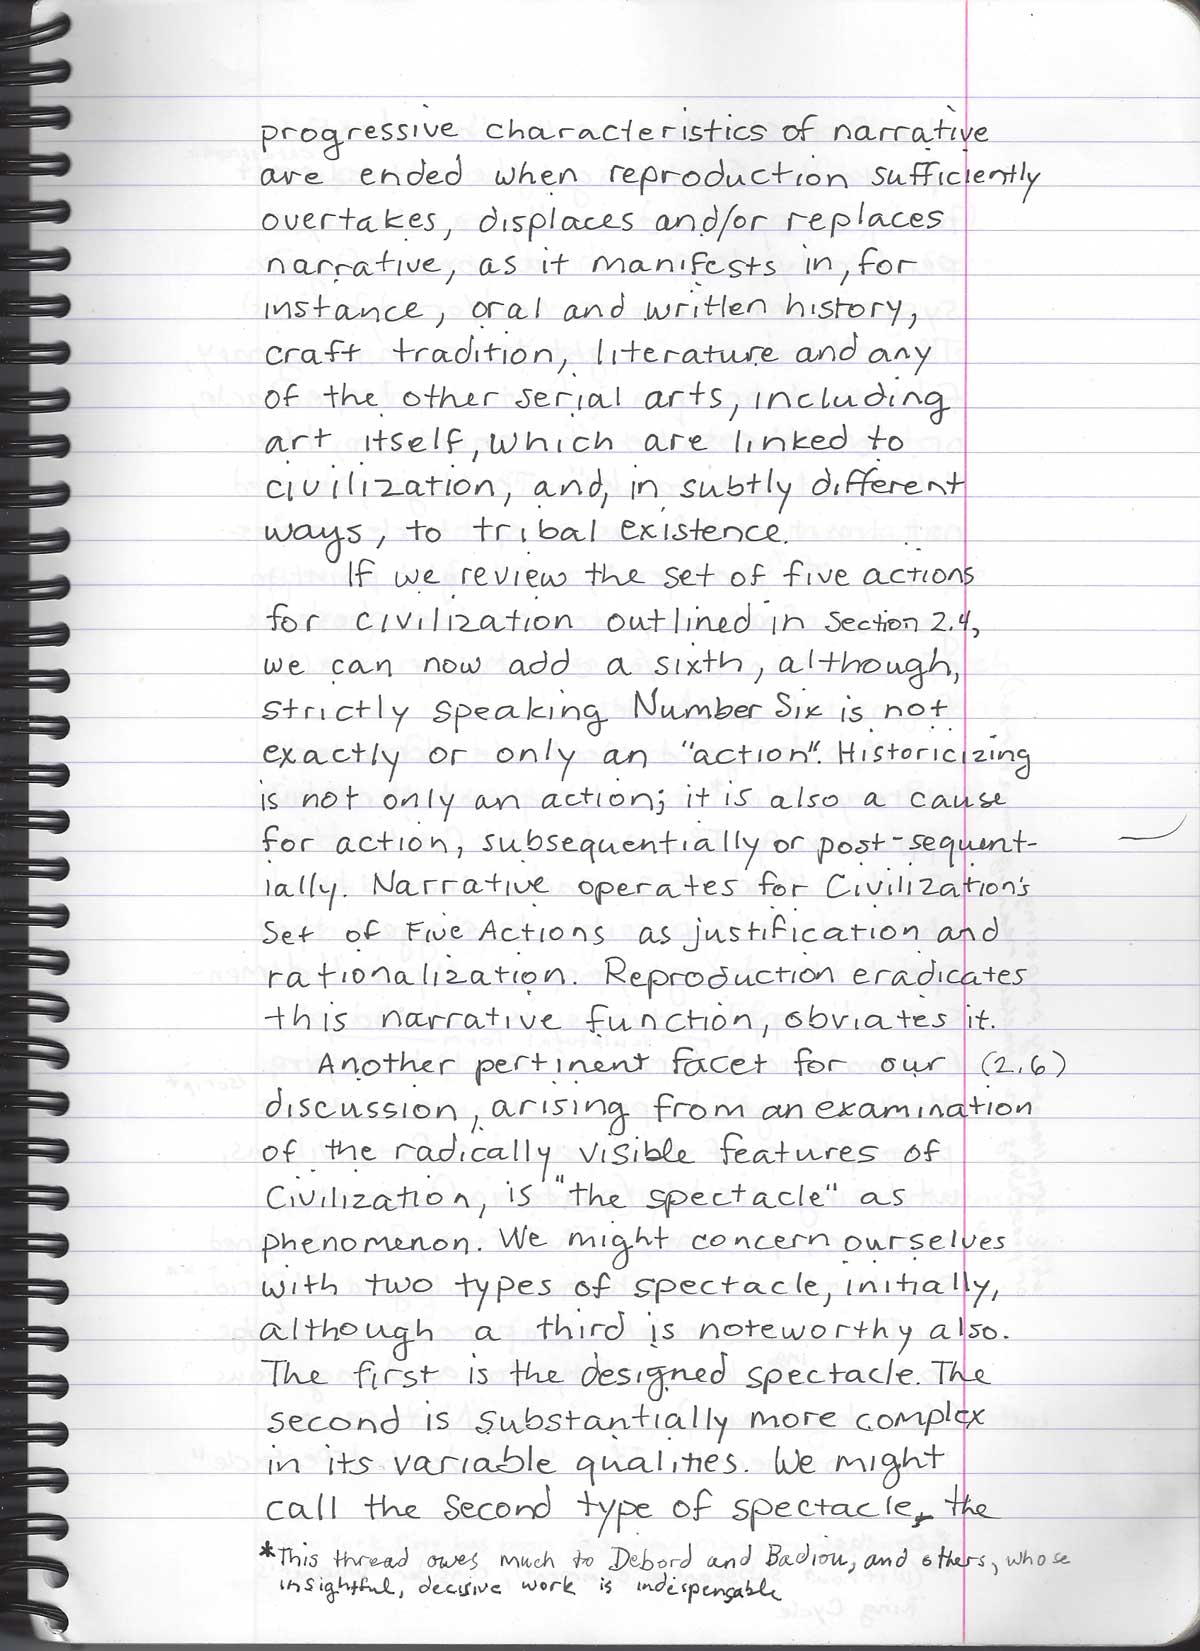 progressive characteristics of narrative
are ended when reproduction sufficiently
overtakes, displaces and/or replaces
narrative, as it manifests in, for
instance, oral and written history,
craft tradition, literature and any
of the other serial arts, including
art itself, which are linked to
civilization, and, in subtly different
ways, to tribal existence.
If we review the set of five actions
for civilization outlined in Section 2.4,
we can now add a sixth, although,
strictly speaking Number Six is not
exactly or only an "action". Historicizing
is not only an action; it is also a cause
for action, subsequentially or post-sequent-
ially. Narrative operates for Civilization's
Set of Five Actions as justification and
rationalization. Reproduction eradicates
this narrative function, obviates it.
Another pertinent facet for our (2.6)
discussion, arising from an examination
of the radically visible features of
Civilization, is "the spectacle" as
phenomenon. We might concern ourselves
with two types of spectacle, initially,
although a third is noteworthy also.
The first is the designed spectacle. The
second is substantially more complex
in its variable qualities. We might
call the second type of spectacle, the
*This thread owes much to Debord and Badiou, and others, whose
insightful, decisive work is indispensable